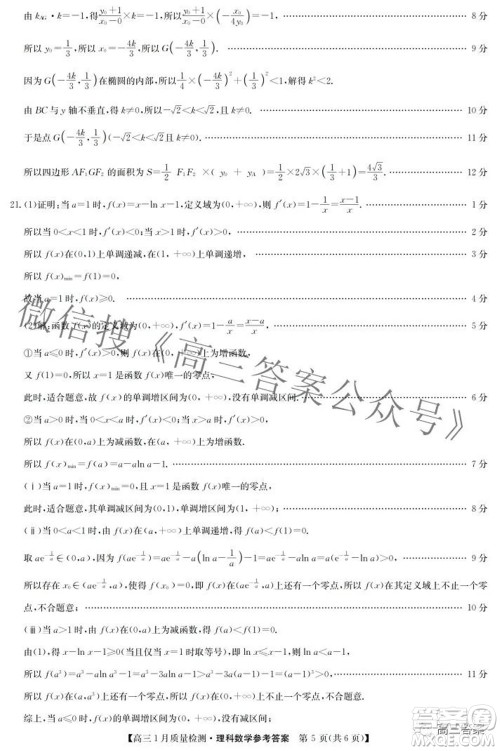 由 k_{AG}·k=-1,得\frac{y_0+1}{x_0-0}×k=-1,即\frac{y_0+1}{x_0}×\left(-\frac{x_0}{4y_0}\right)=-1, 8分
所以 y_0=\frac{1}{3},所以 x_0=-\frac{4k}{3},所以 G\left(-\frac{4k}{3},\frac{1}{3}\right). 9分
因为 G\left(-\frac{4k}{3},\frac{1}{3}\right)在椭圆的内部,所以\frac{1}{4}×\left(-\frac{4k}{3}\right)^2+\left(\frac{1}{3}\right)^2<1,解得 k^2<2.
由 BC 与 y 轴不垂直,得 k≠0,所以-\sqrt{2}<k<\sqrt{2},且 k≠0. 10分
于是点 G\left(-\frac{4k}{3},\frac{1}{3}\right)(-\sqrt{2}<k<\sqrt{2},且 k≠0). 11分
所以四边形 AF_1GF_2 的面积为 S=\frac{1}{2} F_1F_2 ×( y_0 + y_A )=\frac{1}{2}×2\sqrt{3}×\left(\frac{1}{3}+1\right)=\frac{4\sqrt{3}}{3}. 12分
21.(1)证明:当 a=1 时,f(x)=x-ln x-1,定义域为(0,+∞),所以 f′(x)=1-\frac{1}{x}=\frac{x-1}{x}. 1分
所以当 0<x<1 时,f′(x)<0;当 x>1 时,f′(x)>0. 2分
所以 f(x)在(0,1)上单调递减,在(1,+∞)上单调递增,
所以 f(x)_{min}=f(1)=0. 3分
故当 a=1 时,f(x)≥0. 4分
(2)解:函数 f(x)的定义域为(0,+∞),f′(x)=1-\frac{a}{x}=\frac{x-a}{x}. 5分
①当 a≤0 时,f′(x)>0,所以 f(x)在(0,+∞)上为增函数,
又 f(1)=0,所以 x=1 是函数 f(x)唯一的零点,
此时,适合题意,故 f(x)的单调增区间为(0,+∞),无单调减区间. 6分
②当 a>0 时,当 0<x<a 时,f′(x)<0;当 x>a 时,f′(x)>0.
所以 f(x)在(0,a)上为减函数,在(a,+∞)上为增函数.
所以 f(x)_{min}=f(a)=a-aln a-1. 7分
(ⅰ)当 a=1 时,x=1 是函数 f(x)唯一的零点,
此时,适合题意,其单调减区间为(0,1),单调增区间为(1,+∞). 8分
(ⅱ)当 0<a<1 时,因为 f(1)=0,所以 x=1 是函数 f(x)的一个零点,且 f(a)<0,
取 ae^{-\frac{1}{a}}∈(0,a),因为 f(ae^{-\frac{1}{a}})=ae^{-\frac{1}{a}}-a\left(ln a-\frac{1}{a}\right)-1=ae^{-\frac{1}{a}}-aln a>0, 9分
所以存在 x_0∈(ae^{-\frac{1}{a}},a),使得 f(x_0)=0,即 f(x)在(0,a)上还有一个零点,所以 f(x)在其定义域上不止一个零
点,不合题意; 10分
(ⅲ)当 a>1 时,由 f(x)在(0,a)上为减函数,f(1)=0,得 f(a)<0,
由(1),得 x-1≥ln x(当且仅当 x=1 时取等号),即-ln x≥-(x-1)=1-x,且 a^2>a,
所以 f(a^2)=a^2-aln a^2-1=a^2-2aln a-1>a^2-3aln a-1>a^2-3a(a-1)-1=(a-1)(1-2a),
所以 f(x)在(a,+∞)上还有一个零点,所以 f(x)在其定义域上不止一个零点,不合题意. 11分
综上,当 a≤0 时,f(x)的单调增区间为(0,+∞),无单调减区间;
【高三1月质量检测·理科数学参考答案 第5页(共6页)】
微信搜《高三答案公众号》
高三答案